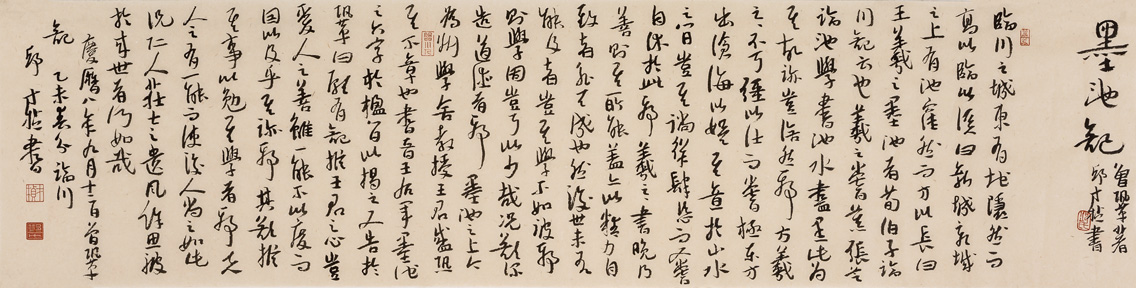 墨池記
曾鞏著
邱才楨書
臨川之城東有地隱然而
高以臨於溪曰新城新城
之上有池窪然而方以長曰
王羲之之墨池者荀伯子臨
川記云也羲之嘗慕張芝
臨池學書池水盡黑此為
其故跡豈信然耶方羲
之之不可強以仕而嘗極東方
出滄海以娛其意於山水
之間豈其徜徉肆恣而又嘗
自休於此耶羲之之書晚乃
善則其所能蓋亦以精力自
致者非天成也然後世未有
能及者豈其學不如彼耶
則學固豈可以少哉況欲深
造道德者耶墨池之上今
為州學舍教授王君盛恐
其不章也書晉王右軍墨池
之六字於楹間以揭之又告於
鞏曰願有記推王君之心豈
愛人之善雖一能不以廢而
因以及乎其跡耶其欲推
其事以勉其學者耶夫
人之有一能而使後人尚之如此
況仁人莊士之遺風餘思被
於來世者何如哉
慶曆八年九月十二日曾鞏
記 乙未春分臨川
邱才楨書